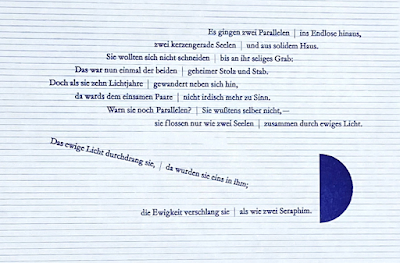 Es gingen zwei Parallelen | ins Endlose hinaus,
zwei kerzengerade Seelen | und aus solidem Haus.
Sie wollten sich nicht schneiden | bis an ihr seliges Grab:
Das war nun einmal der beiden | geheimer Stolz und Stab.
Doch als sie zehn Lichtjahre | gewandert neben sich hin,
da wards dem einsamen Paare | nicht irdisch mehr zu Sinn.
Warn sie noch Parallelen? | Sie wußtens selber nicht,—
sie flossen nur wie zwei Seelen | zusammen durch ewiges Licht.
Das ewige Licht durchdrang sie, | da wurden sie eins in ihm;
die Ewigkeit verschlang sie | als wie zwei Seraphim.